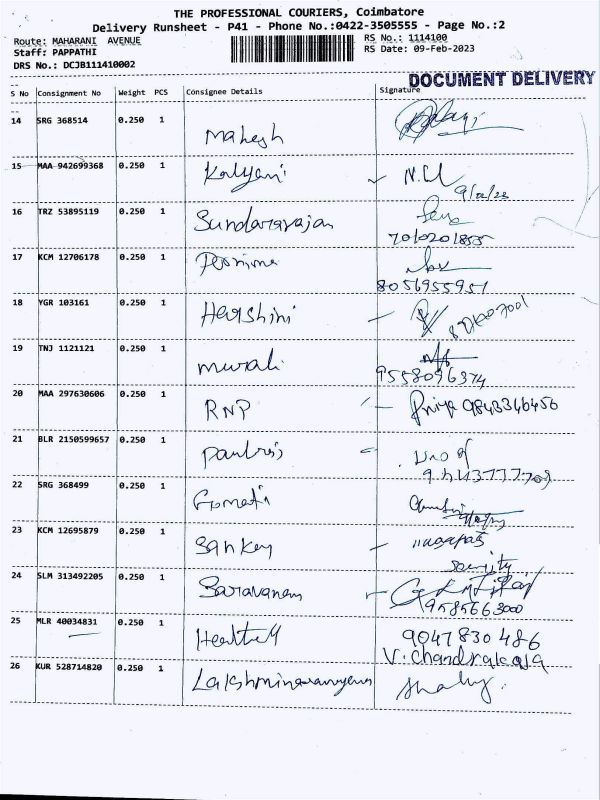 THE PROFESSIONAL COURIERS, Coimbatore
Delivery Runsheet - P41 - Phone No.:0422-3505555 - Page No.:2
Route: MAHARANI AVENUE
Staff: PAPPATHI
DRS No.: DCJB111410002
RS No.: 1114100
RS Date: 09-Feb-2023
DOCUMENT DELIVERY
S No Consignment No Weight PCS Consignee Details Signature
14 SRG 368514 0.250 1 Mahesh
15 MAA 942699368 0.250 1 Kalyani
16 TRZ 53895119 0.250 1 Sundararajan
17 KCM 12706178 0.250 1
8056955951
18 YGR 103161 0.250 1 Harshini
19 TNJ 1121121 0.250 1 murali
9558096374
20 MAA 297630606 0.250 1 RNP Priya 9843346456
21 BLR 2150599657 0.250 1
22 SRG 368499 0.250 1 Gomati
23 KCM 12695879 0.250 1 Sankey
24 SLM 313492205 0.250 1 Saravanan
9585663000
25 MLR 40034831 0.250 1 9047830486
V. Chandrakala
26 KUR 528714820 0.250 1